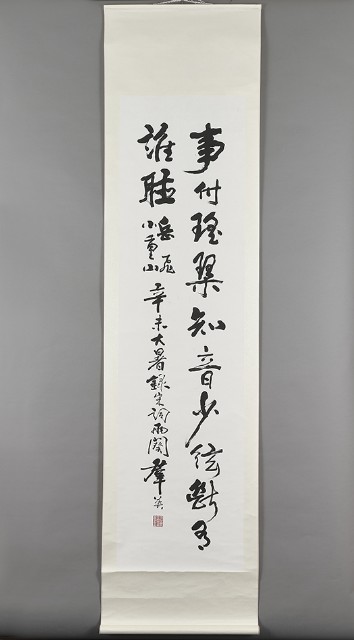 事付瑤琴知音少弦斷有
誰聽
岳飛
小重山
辛未大暑錄宋詞兩闋 群英